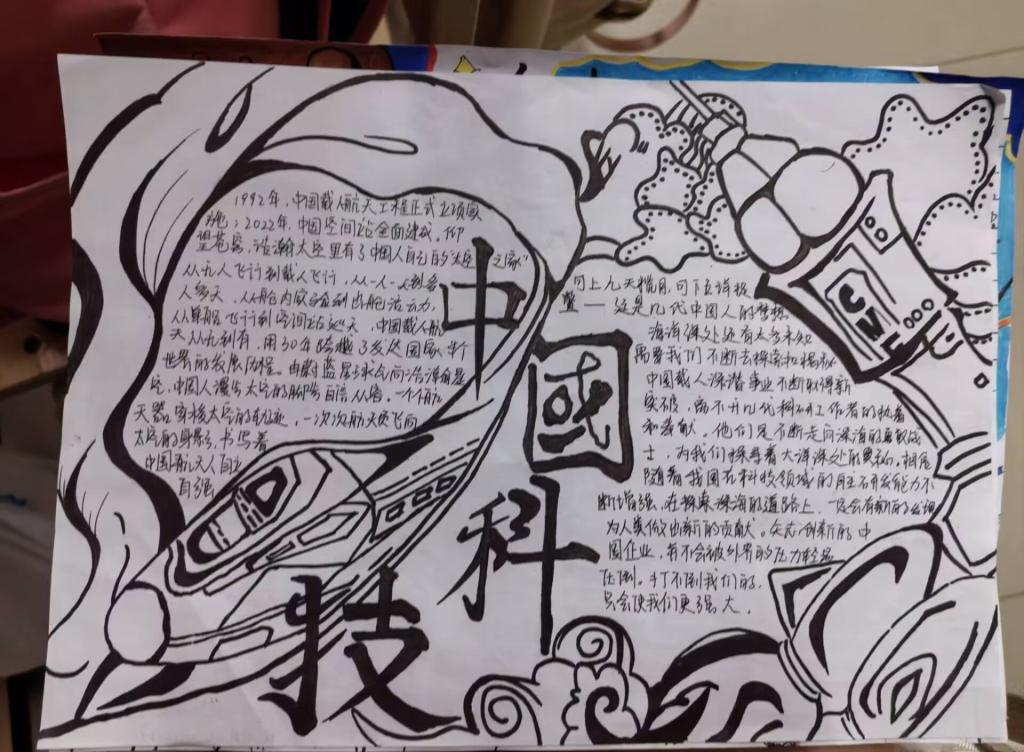 中國科技
1992年，中国载人航天工程正式立项实
施；2022年，中国空间站全面建成。仰
望苍穹，浩瀚太空里有了中国人自己的"太空之家"
从无人飞行到载人飞行，从一人一天到多
人多天，从舱内实验到出舱活动，
从单船飞行到空间站巡天，中国载人航
天从无到有，用30年跨越了发达国家半个
世界的发展历程。由蔚蓝星球向浩瀚星
空，中国人漫步太空的脚步自信从容。一个个航
天器穿梭太空的轨迹，一次次航天员飞向
太空的身影，书写着
中国航天人自立
自强
可上九天揽月，可下五洋捉
鳖——这是几代中国人的梦想
海洋深处还有太多未知
需要我们不断去探索和揭秘
中国载人深潜事业不断取得新
突破，离不开几代科研工作者的执着
和奉献。他们是不断走向深海的勇敢战
士，为我们探寻着大洋深处的奥秘，相信
随着我国在科技领域的自主研发能力不
断增强，在探索深海的道路上，
为人类做出新的贡献。矢志创新的中
国企业，若不会被外界的压力轻易
压倒。打不倒我们的，
只会使我们更强大。